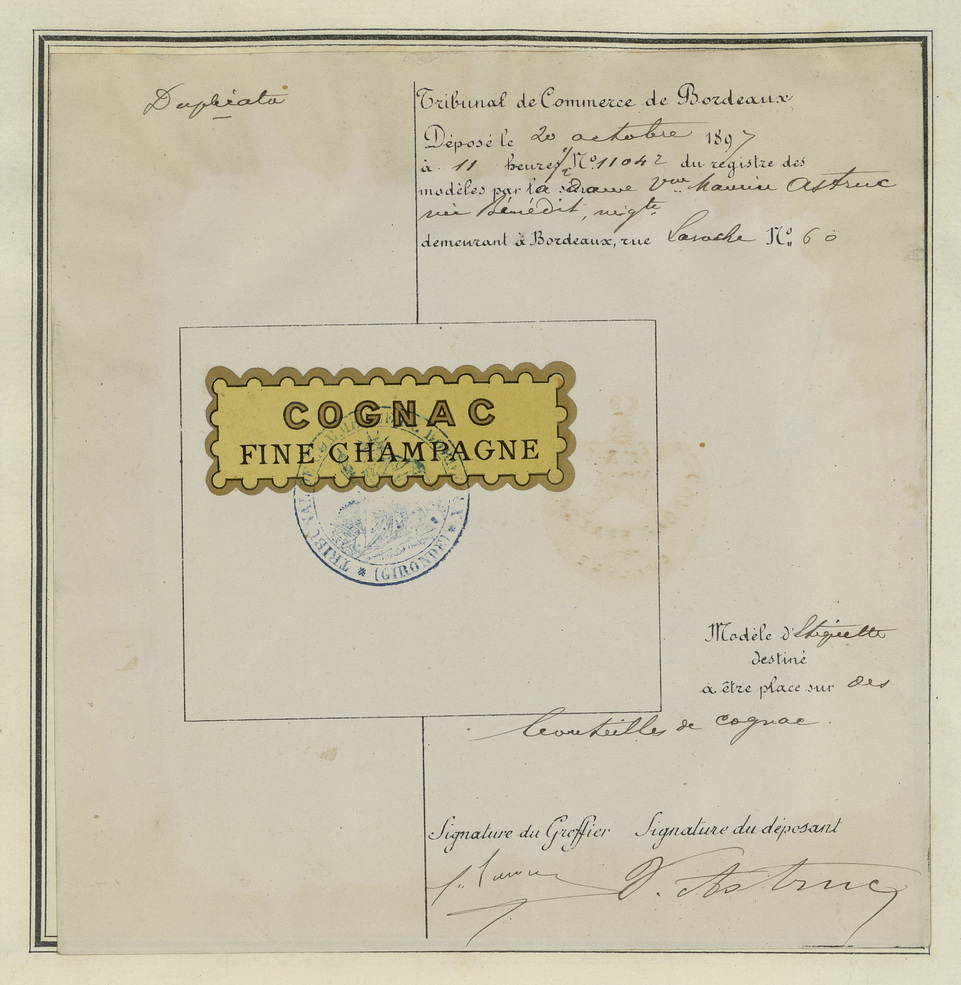 Duplicata
Tribunal de Commerce de Bordeaux
Déposé le 20 octobre 1897
à 11 heures 1/2 N° 11042 du registre des
modèles par la dame Vve Astruc
née Bénédit, négte
demeurant à Bordeaux, rue Laroche N° 60
COGNAC
FINE CHAMPAGNE
TRIBUNAL DE COMMERCE DE BORDEAUX
* (GIRONDE) *
Modèle d'Etiquette
destiné
à être place sur des
bouteilles de cognac.
Signature du Greffier Signature du déposant
V. Astruc